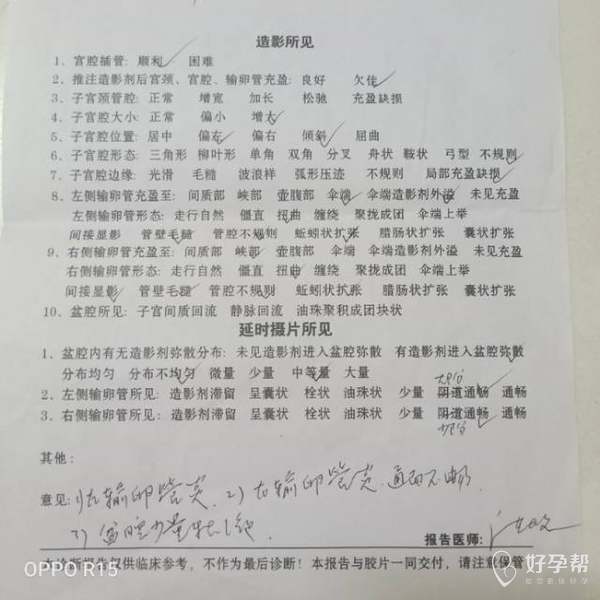 造影所见
1、宫腔插管：顺利 困难
2、推注造影剂后宫颈、宫腔、输卵管充盈：良好 欠佳
3、子宫颈管腔：正常 增宽 加长 松驰 充盈缺损
4、子宫腔大小：正常 偏小 增大
5、子宫腔位置：居中 偏左 偏右 倾斜 屈曲
6、子宫腔形态：三角形 柳叶形 单角 双角 分叉 舟状 鞍状 弓型 不规则
7、子宫腔边缘：光滑 毛糙 波浪样 弧形压迹 不规则 局部充盈缺损
8、左侧输卵管充盈至：间质部 峡部 壶腹部 伞端 伞端造影剂外溢 未见充盈
左侧输卵管形态：走行自然 僵直 扭曲 缠绕 聚拢成团 伞端上举
间接显影 管壁毛糙 管腔不规则 蚯蚓状扩张 腊肠状扩张 囊状扩张
9、右侧输卵管充盈至：间质部 峡部 壶腹部 伞端 伞端造影剂外溢 未见充盈
右侧输卵管形态：走行自然 僵直 扭曲 缠绕 聚拢成团 伞端上举
间接显影 管壁毛糙 管腔不规则 蚯蚓状扩张 腊肠状扩张 囊状扩张
10、盆腔所见：子宫间质回流 静脉回流 油珠聚积成团块状
延时摄片所见
1、盆腔内有无造影剂弥散分布：未见造影剂进入盆腔弥散 有造影剂进入盆腔弥散
分布均匀 分布不均匀 微量 少量 中等量 大量
2、左侧输卵管所见：造影剂滞留 呈囊状 栓状 油珠状 少量 阴道通畅 通畅
3、右侧输卵管所见：造影剂滞留 呈囊状 栓状 油珠状 少量 阴道通畅 通畅
其他：
意见：1)左输卵管炎 2)右输卵管炎 通而不畅
3)盆腔少量粘连
报告医师：
本诊断报告仅供临床参考，不作为最后诊断！本报告与胶片一同交付，请注意保管
OPPO R15
好孕帮